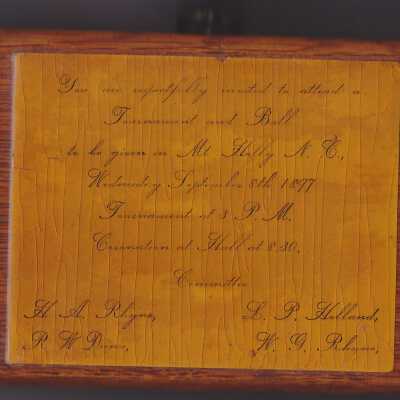 You are respectfully invited to attend a
Tournament and Ball
to be given in Mt Holly N. C.,
Wednesday September 8th 1877
Tournament at 3 P. M.
Coronation at Hall at 8:30.
Committee
H. A. Rhyne, L. P. Holland,
R. W. W. G. Rhyne,